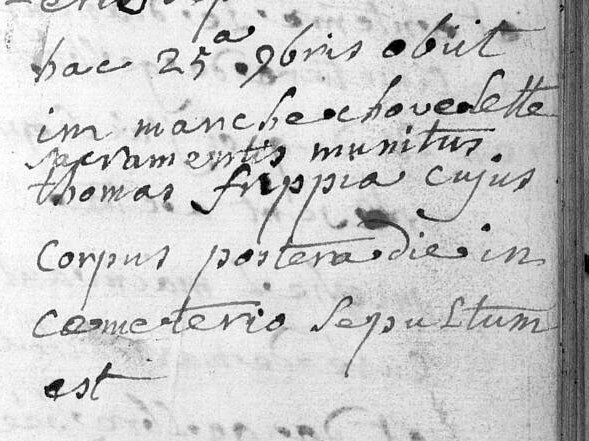 hac 25a 9bris obiit
im marche chovedette
sacramentis munitus
thomas frippia cujus
corpus postera die in
cemeterio sepultum
est